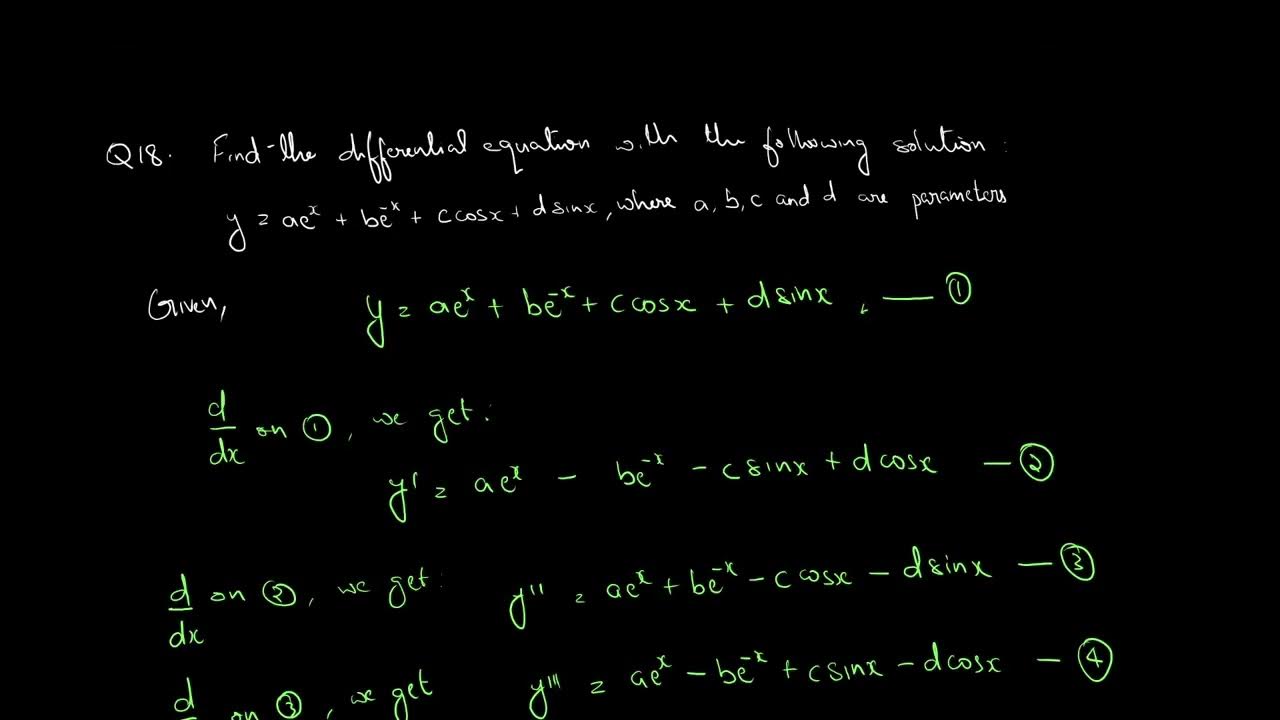 Q18. Find the differential equation with the following solution :
y = aeˣ + be⁻ˣ + c cosx + d sinx, where a, b, c and d are parameters
Given, y = aeˣ + be⁻ˣ + c cosx + d sinx , — ①
d/dx on ①, we get :
y' = aeˣ - be⁻ˣ - c sinx + d cosx — ②
d/dx on ②, we get : y'' = aeˣ + be⁻ˣ - c cosx - d sinx — ③
d on ③, we get y''' = aeˣ - be⁻ˣ + c sinx - d cosx — ④